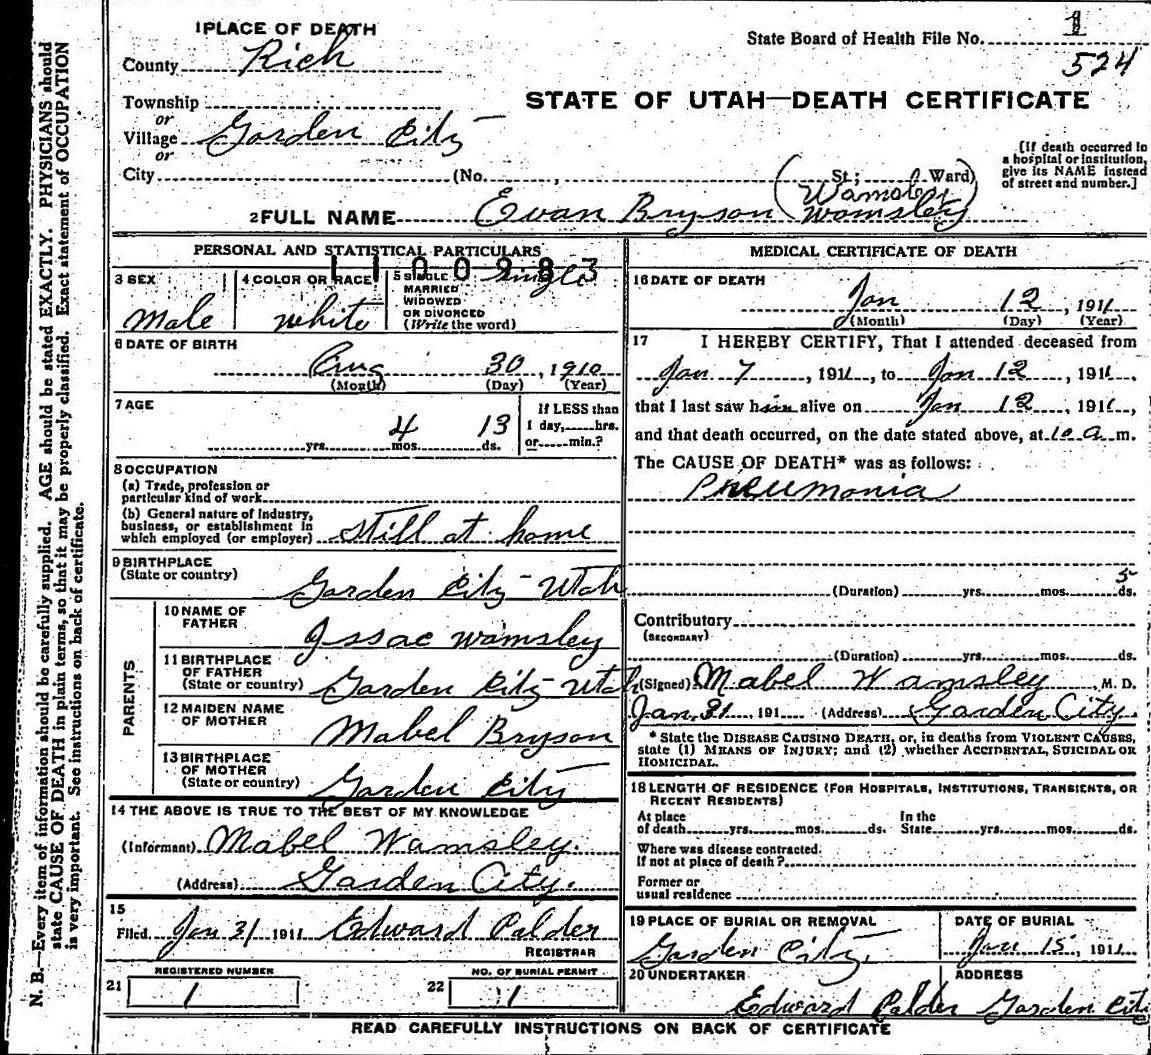 1 PLACE OF DEATH
County Rich
State Board of Health File No. 1
524
Township
or
Village Garden City
or
City (No. , St; Ward)
STATE OF UTAH—DEATH CERTIFICATE
[If death occurred in
a hospital or institution,
give its NAME instead
of street and number.]
(Wamsley)
2 FULL NAME Evan Bryson Womsley
PERSONAL AND STATISTICAL PARTICULARS
1100983
3 SEX
Male
4 COLOR OR RACE
white
5 SINGLE
MARRIED
WIDOWED
OR DIVORCED
(Write the word)
Single
6 DATE OF BIRTH
Aug 30, 1910
(Month) (Day) (Year)
7 AGE
yrs. 4 mos. 13 ds.
If LESS than
1 day, hrs.
or min.?
8 OCCUPATION
(a) Trade, profession or
particular kind of work
(b) General nature of industry,
business, or establishment in
which employed (or employer) still at home
9 BIRTHPLACE
(State or country) Garden City Utah
PARENTS
10 NAME OF
FATHER Issac Wamsley
11 BIRTHPLACE
OF FATHER
(State or country) Garden City Utah
12 MAIDEN NAME
OF MOTHER Mabel Bryson
13 BIRTHPLACE
OF MOTHER
(State or country) Garden City
14 THE ABOVE IS TRUE TO THE BEST OF MY KNOWLEDGE
(Informant) Mabel Wamsley.
(Address) Garden City.
15
Filed Jan 31 1911 Edward Calder
REGISTRAR
21 REGISTERED NUMBER
1
22 NO. OF BURIAL PERMIT
1
MEDICAL CERTIFICATE OF DEATH
16 DATE OF DEATH
Jan 12, 1911
(Month) (Day) (Year)
17 I HEREBY CERTIFY, That I attended deceased from
Jan 7, 1911, to Jan 12, 1911,
that I last saw him alive on Jan 12, 1911,
and that death occurred, on the date stated above, at 10 a m.
The CAUSE OF DEATH* was as follows:
Pneumonia
(Duration) yrs. mos. 5 ds.
Contributory
(SECONDARY)
(Duration) yrs. mos. ds.
(Signed) Mabel Wamsley M. D.
Jan. 31 191 (Address) Garden City.
* State the DISEASE CAUSING DEATH, or, in deaths from VIOLENT CAUSES,
state (1) MEANS OF INJURY; and (2) whether ACCIDENTAL, SUICIDAL OR
HOMICIDAL.
18 LENGTH OF RESIDENCE (FOR HOSPITALS, INSTITUTIONS, TRANSIENTS, OR
RECENT RESIDENTS)
At place
of death yrs. mos. ds.
In the
State yrs. mos. ds.
Where was disease contracted.
If not at place of death?
Former or
usual residence
19 PLACE OF BURIAL OR REMOVAL
Garden City.
DATE OF BURIAL
Jan 15, 1911
20 UNDERTAKER
Edward Calder
ADDRESS
Garden City
READ CAREFULLY INSTRUCTIONS ON BACK OF CERTIFICATE
N. B.—Every item of information should be carefully supplied. AGE should be stated EXACTLY. PHYSICIANS should
state CAUSE OF DEATH in plain terms, so that it may be properly classified. Exact statement of OCCUPATION
is very important. See instructions on back of certificate.